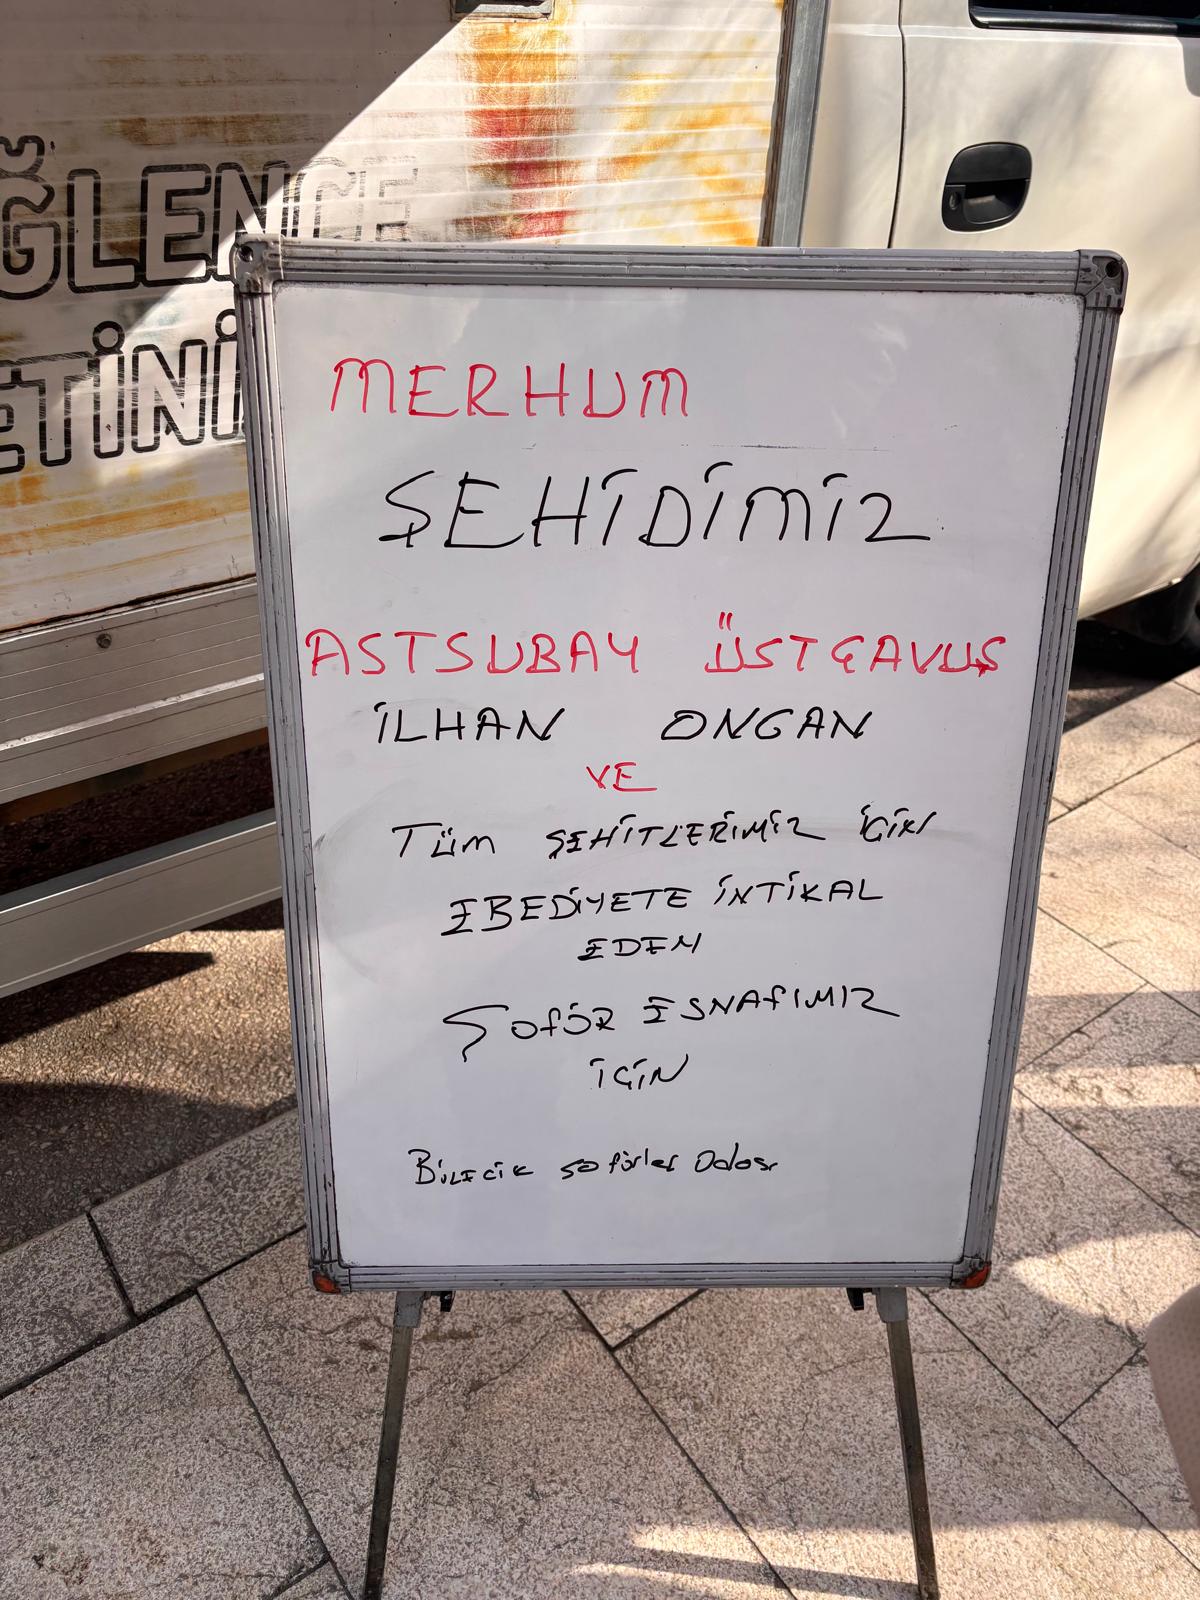 ĞLENCE
ETİNİ
MERHUM
ŞEHİDİMİZ
ASTSUBAY ÜSTÇAVUŞ
İLHAN ONGAN
VE
TÜM ŞEHİTLERİMİZ İÇİN
EBEDİYETE İNTİKAL
EDEN
ŞOFÖR ESNAFIMIZ
İÇİN
BİLECİK şoförler Odası